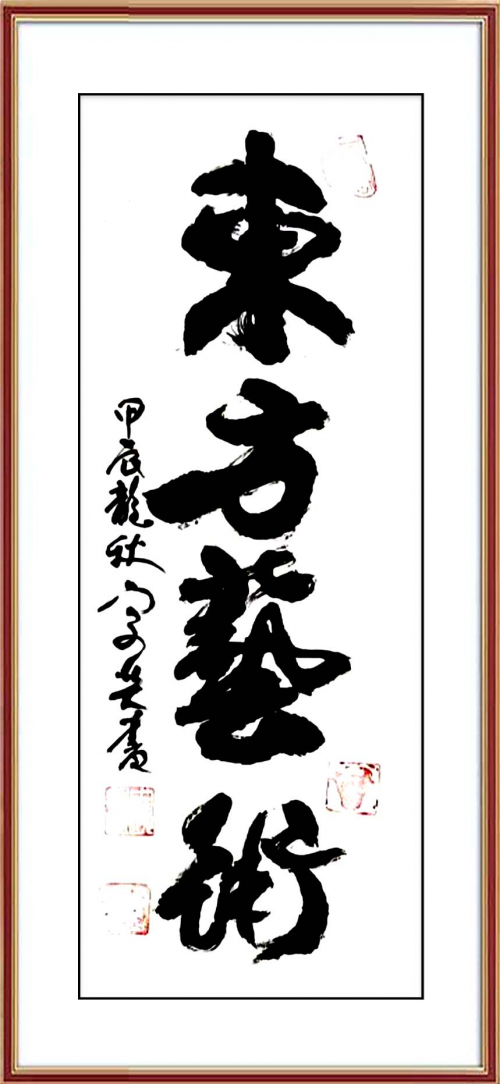 東方藝術
甲辰龍秋
書